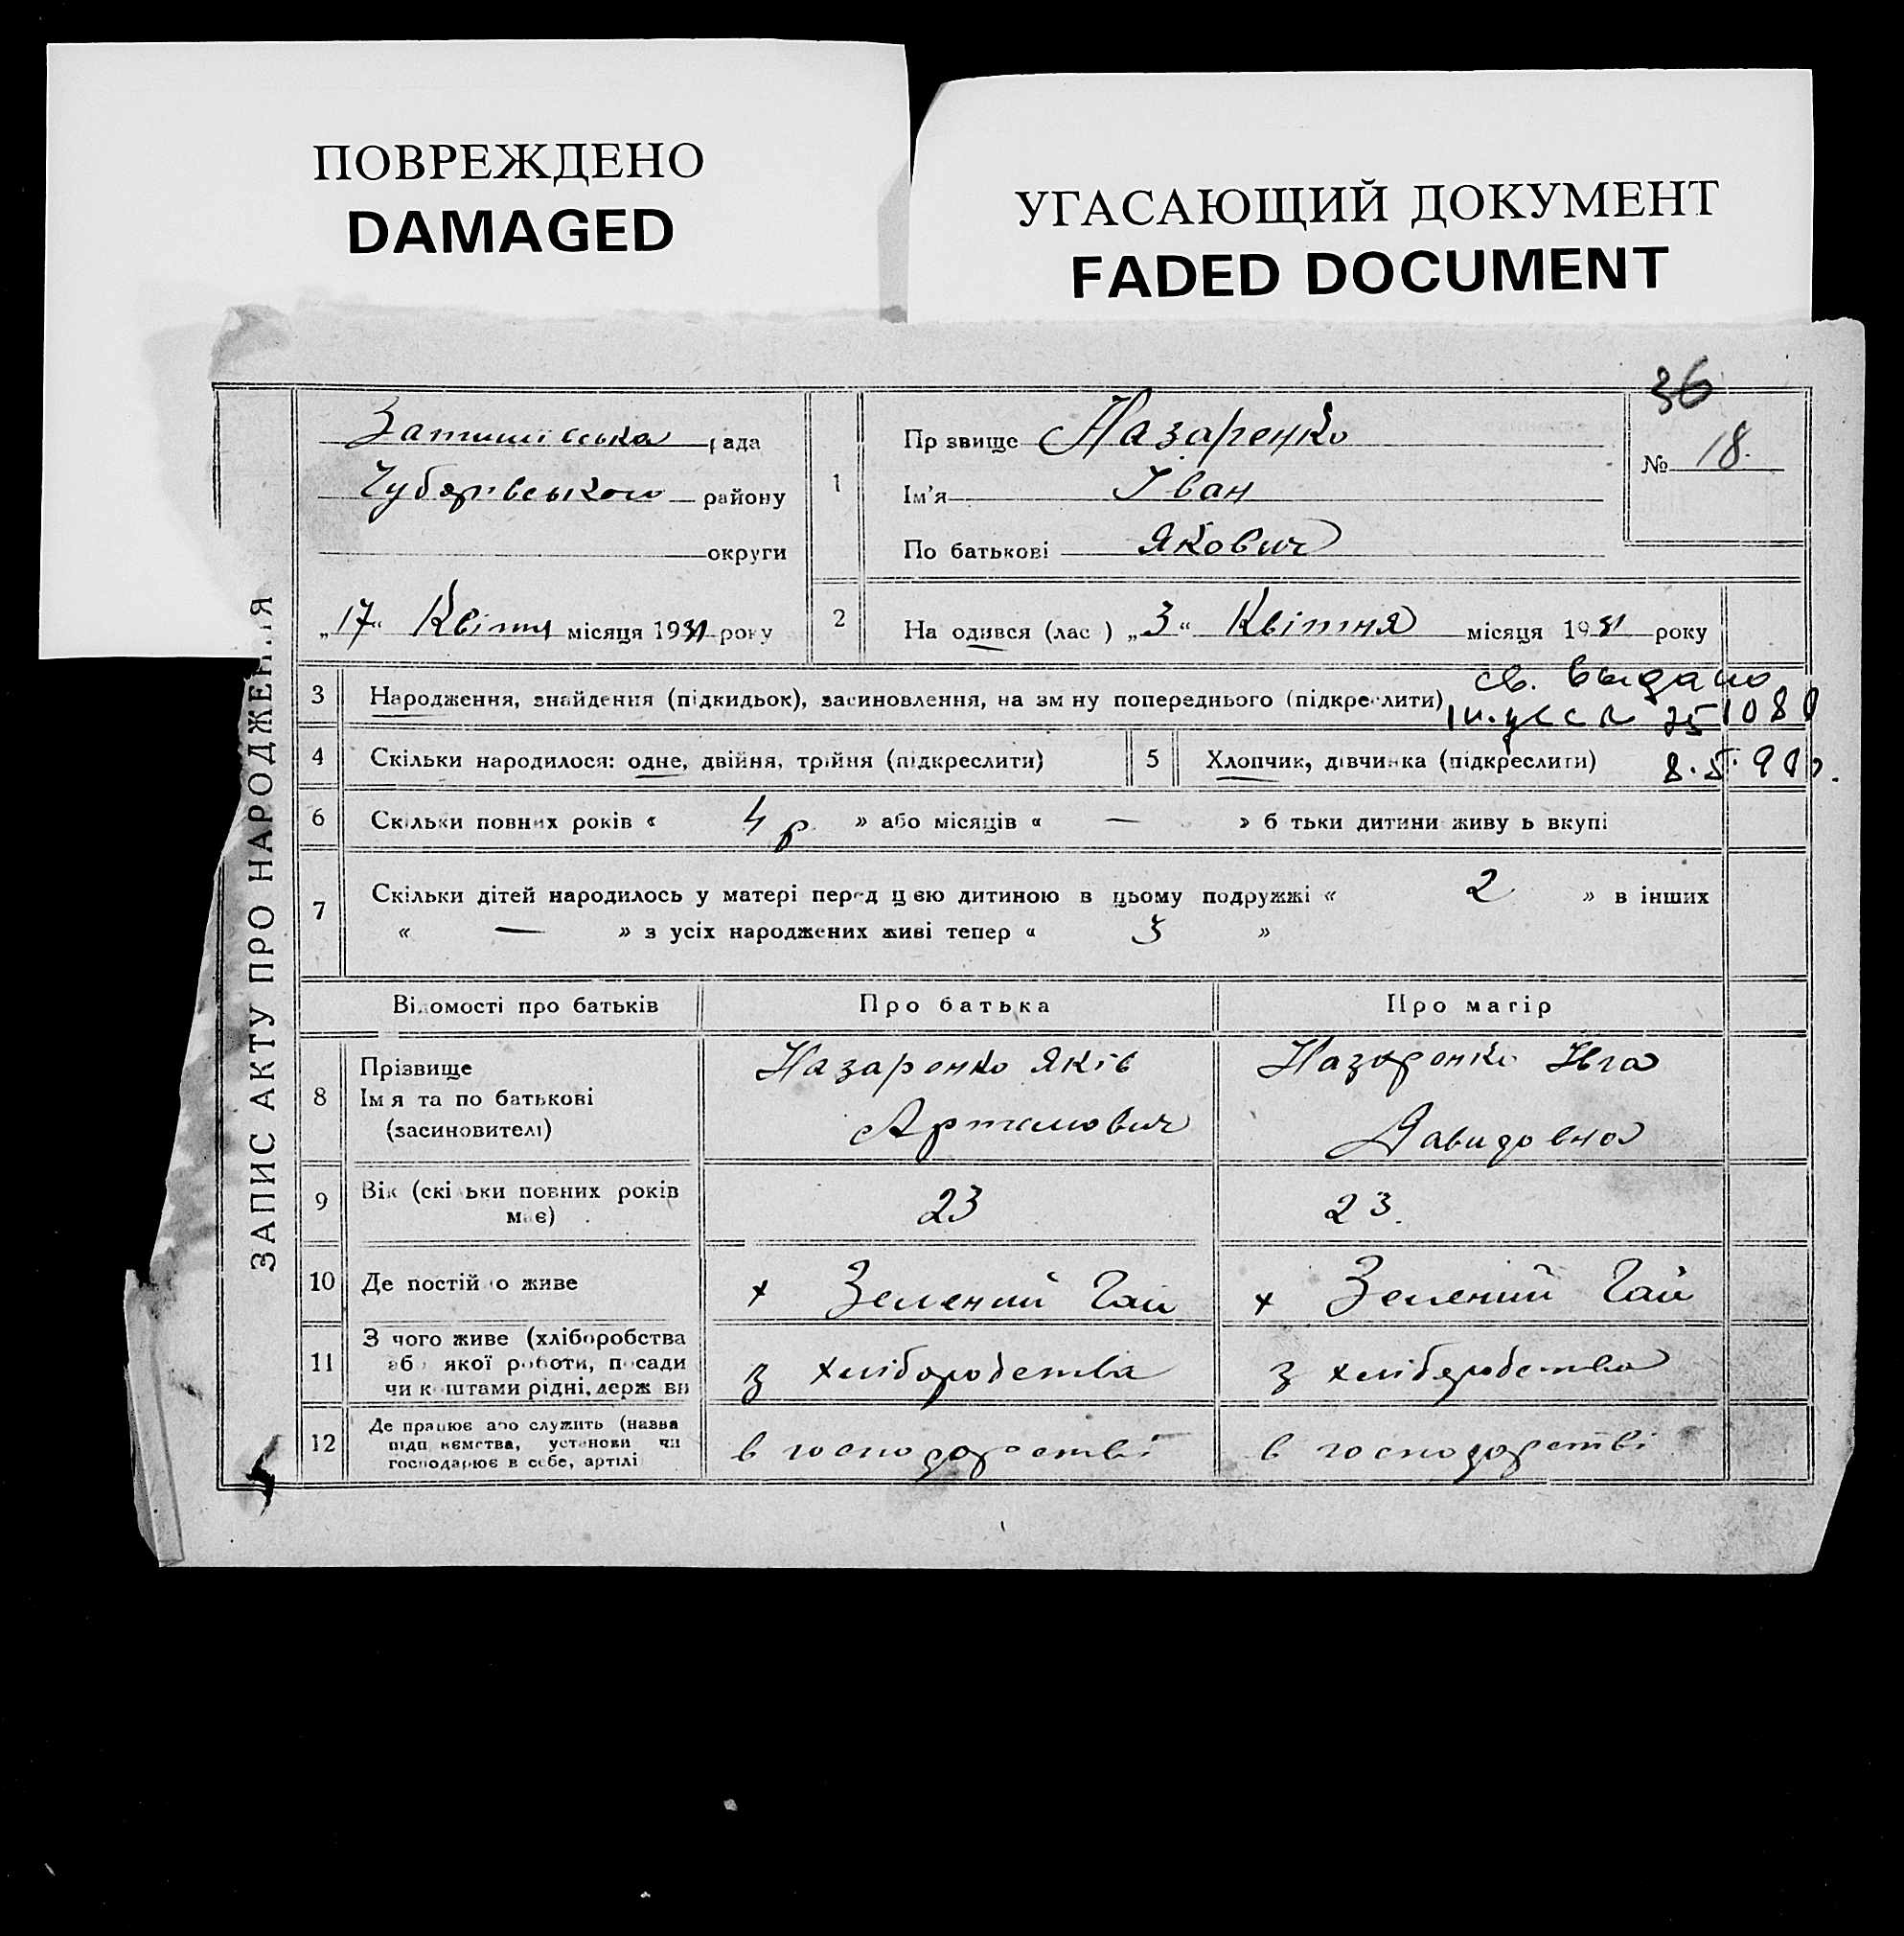 ПОВРЕЖДЕНО
DAMAGED
УГАСАЮЩИЙ ДОКУМЕНТ
FADED DOCUMENT
36
ЗАПИС АКТУ ПРО НАРОДЖЕННЯ
Затишівська рада
Чубарівського району
округи
„17“ Квітня місяця 1931 року
1
Пр звище Назаренко
Ім'я Іван
По батькові Якович
№ 18.
2
На одився (лас ) „3“ Квітня місяця 1931 року
3 Народження, знайдення (підкидьок), засиновлення, на зм ну попереднього (підкреслити)
св. выдано
251080
4 Скільки народилося: одне, двійня, трійня (підкреслити)
5 Хлопчик, дівчинка (підкреслити)
6 Скільки повних років « 4 р » або місяців « — » б тьки дитини живу ь вкупі
7 Скільки дітей народилось у матері перед цією дитиною в цьому подружжі « 2 » в інших
« — » з усіх народжених живі тепер « 3 »
Відомості про батьків Про батька Про матір
8 Прізвище
Ім я та по батькові
(засиновителі)
Назаренко Яків
Артемович
Назаренко Ївга
Давидовна
9 Вік (скі ьки повних років
має)
23
23.
10 Де постій о живе
х Зелений Гай
х Зелений Гай
11 З чого живе (хліборобства
або якої роботи, посади
чи к штами рідні, держ ви
з хліборобства
з хліборобства
12 Де працює або служить (назва
підп ємства, установи чи
господарює в себе, артілі
в господарстві
в господарстві